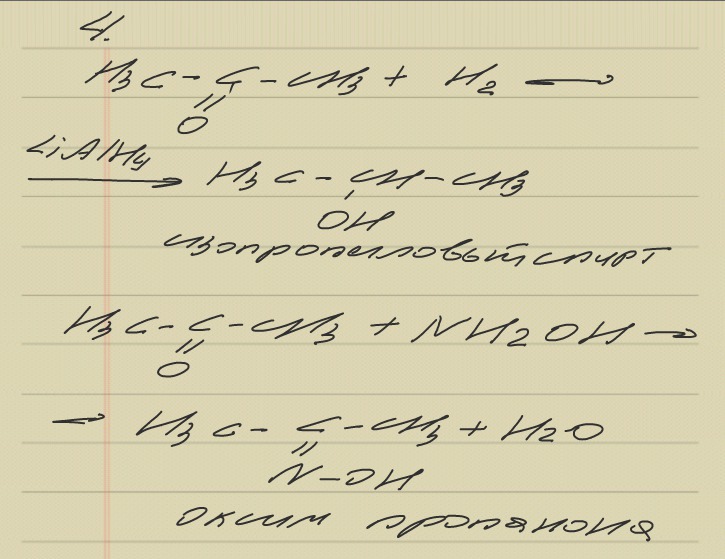 4.
H3C-C-CH3 + H2 →
=
O
LiAlH4 → H3C-CH-CH3
OH
изопропиловый спирт
H3C-C-CH3 + NH2OH →
=
O
→ H3C-C-CH3 + H2O
=
N-OH
оксим пропанона